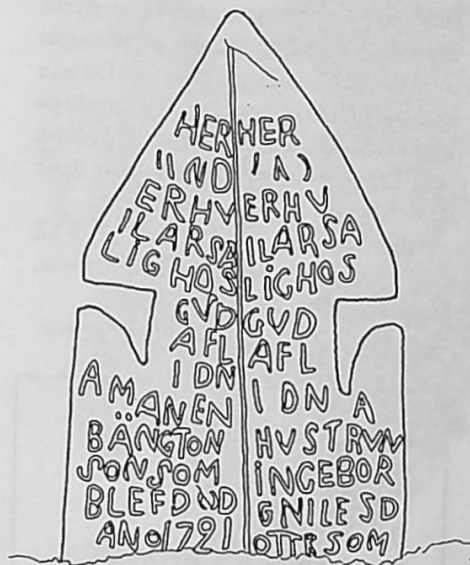 HER
IIND
ERHV
ILARSA
LIGHOS
GVD
AFL
IDN
AMANEN
BÄNGTON
SONSOM
BLEF
ANO1721
HER
ERHV
ILARSA
LIGHOS
GVD
AFL
IDN A
HVSTRVN
INGEBOR
GNILESD
OTTRSOM